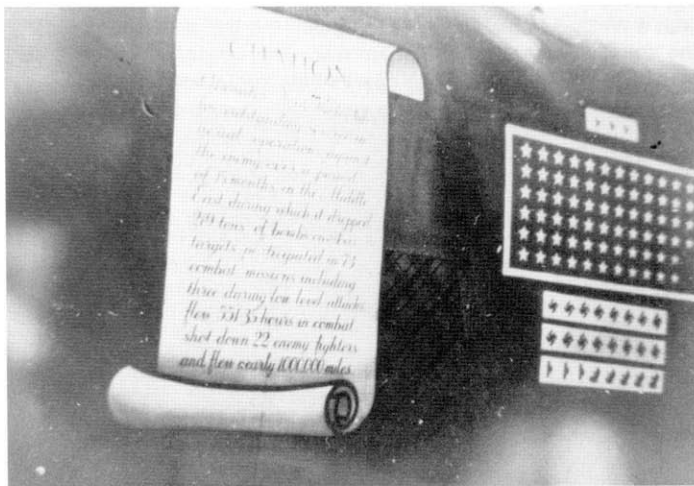 CITATION
for outstanding service in
aerial operation against
the enemy over a period
of 15 months in the Middle
East during which it dropped
tons of bombs on Axis
targets participated in 73
combat missions including
three daring low level attacks
flew 551 35 hours in combat
shot down 22 enemy fighters
and flew nearly 1000000 miles